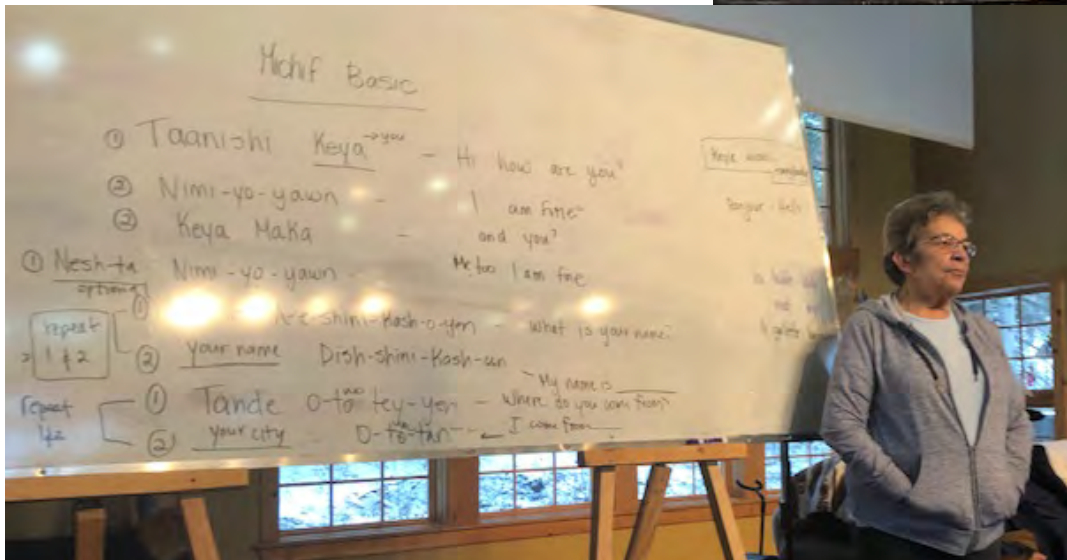 Michif Basic
① Taanishi Keya →you – Hi how are you?
② Nimi-yo-yawn – I am fine
② Keya Maka – and you?
① Nesh-ta Nimi-yo-yawn – Me too I am fine
optional
① e-shini-Kash-o-yen – What is your name?
repeat 1 & 2
② your name Dish-shini-Kash-un
My name is
① Tande O-to tey-yen – Where do you come from?
repeat 1&2
② your city – I come from
Bonjour - Hello